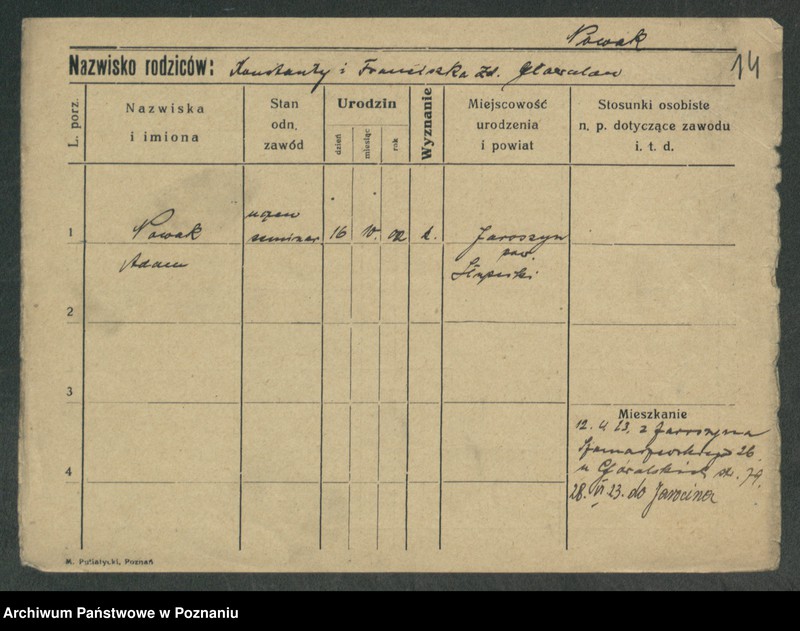 Nowak
Nazwisko rodziców: Konstanty i Franciszka zd.
14
L. porz.
Nazwiska
i imiona
Stan
odn.
zawód
Urodzin
dzień
miesiąc
rok
Wyznanie
Miejscowość
urodzenia
i powiat
Stosunki osobiste
n. p. dotyczące zawodu
i. t. d.
1
Nowak
Adam
uczeń
seminar
16
10.
02
k.
Jaroszyn
pow.
Słupecki
2
3
4
Mieszkanie
12. 4. 23. z Jaroszyna
26
u st. 74.
28. VI 23. do Jarocina
M. Putiatycki, Poznań
Archiwum Państwowe w Poznaniu